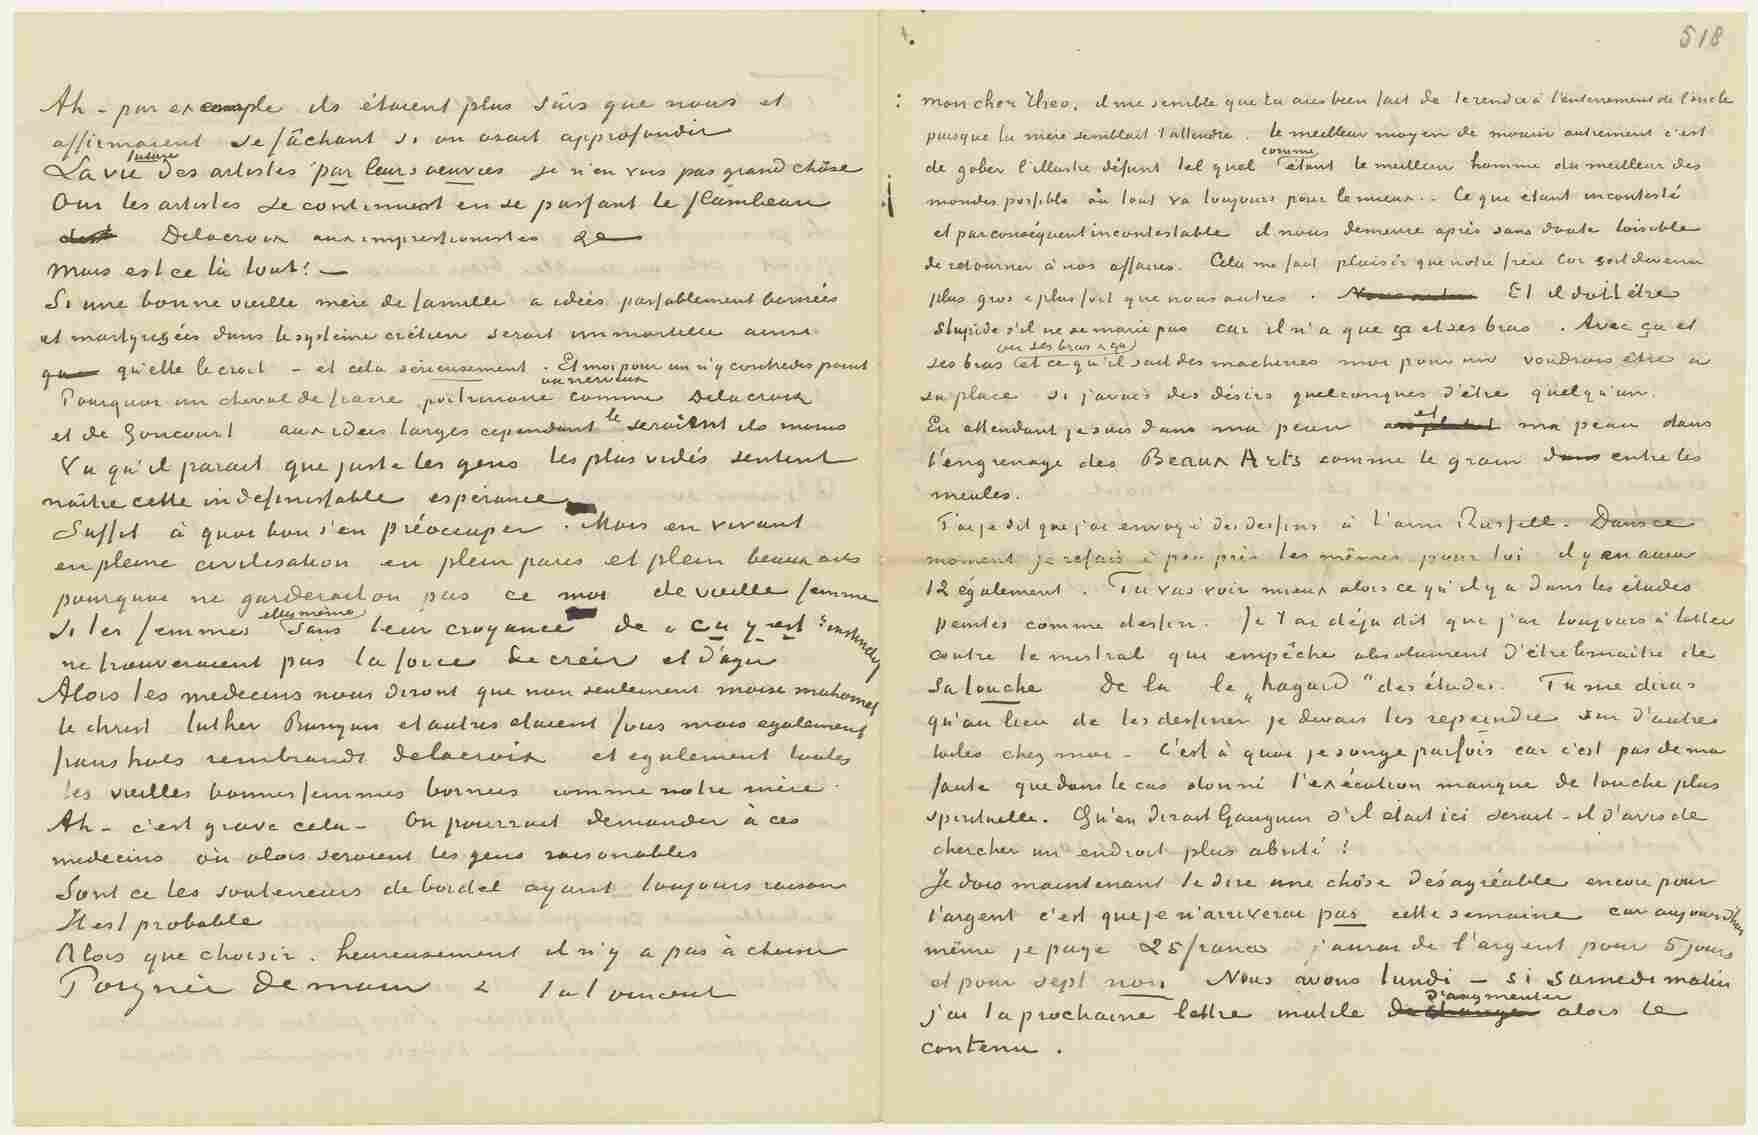 Ah - par exemple ils étaient plus sûrs que nous et
affirmaient se fâchant si on osait approfondir
future
La vie des artistes par leurs oeuvres je n'en vois pas grand chôse
Oui les artistes se continuent en se passant le flambeau
Delacroix aux impressionistes &c
mais est ce là tout! —
Si une bonne vieille mère de famille a idées passablement bornées
et martyrisées dans le système crétien serait immortelle ainsi
qu'elle le croit - et cela sérieusement . Et moi pour un n'y contredis point
ou nerveux
Pourquoi un cheval de fiacre poitrinaire comme Delacroix
et de Goncourt aux idées larges cependant le seraient ils moins
Vu qu'il parait que juste les gens les plus vidés sentent
naître cette indefinissable espérance
Suffit à quoi bon s'en préoccuper . Mais en vivant
en pleine civilisation en plein paris et plein beaux arts
pourquoi ne garderait on pas ce moi de vieille femme
elles même
Si les femmes sans leur croyance de „ ça y est" instinctif
ne trouveraient pas la force de créer et d'agir
Alors les medecins nous diront que non seulement moise mahomet
le christ luther Bunyan et autres etaient fous mais egalement
frans hals rembrandt delacroix et egalement toutes
les vieilles bonnes femmes bornées comme notre mère .
Ah - c'est grave cela - On pourrait demander à ces
medecins où alors seraient les gens raisonables
Sont ce les souteneurs de bordel ayant toujours raison
Il est probable
Alors que choisir . heureusement il n'y a pas à choisir
Poignée de main t. à t. Vincent
518
mon cher Theo, il me semble que tu aies bien fait de te rendre à l'enterrement de l'oncle
puisque la mère semblait t'attendre . le meilleur moyen de mourir autrement c'est
comme
de gober l'illustre défunt tel quel étant le meilleur homme du meilleur des
mondes possible où tout va toujours pour le mieux . Ce que étant incontesté
et par conséquent incontestable il nous demeure après sans doute loisible
de retourner à nos affaires. Cela me fait plaisir que notre frère Cor soit devenu
plus gros & plus fort que nous autres . Et il doit être
stupide s'il ne se marie pas car il n'a que ça et ses bras . Avec ça et
ou ses bras & ça
ses bras et ce qu'il sait des machines moi pour un voudrais être à
sa place si j'avais des désirs quelconques d'être quelqu'un.
et
En attendant je suis dans ma peau ma peau dans
l'engrenage des Beaux Arts comme le grain entre les
meules.
T'ai je dit que j'ai envoyé des dessins à l'ami Russell. Dans ce
moment je refais à peu près les mêmes pour toi il y en aura
12 également . Tu vas voir mieux alors ce qu'il y a dans les études
peintes comme dessin. Je t'ai déjà dit que j'ai toujours à lutter
contre le mistral qui empêche absolument d'être le maître de
sa touche de là le „hagard" des études. Tu me diras
qu'au lieu de les dessiner je devais les repeindre sur d'autres
toiles chez moi - C'est à quoi je songe parfois car c'est pas de ma
faute que dans le cas donné l'exécution manque de touche plus
spirituelle. Qu'en dirait Gauguin s'il était ici serait-il d'avis de
chercher un endroit plus abrité !
Je dois maintenant te dire une chôse désagréable encore pour
l'argent c'est que je n'arriverai pas cette semaine car aujourd'hui
même je paye 25 francs j'aurai de l'argent pour 5 jours
et pour sept non Nous avons lundi - si samedi matin
d'augmenter
j'ai ta prochaine lettre inutile alors le
contenu .